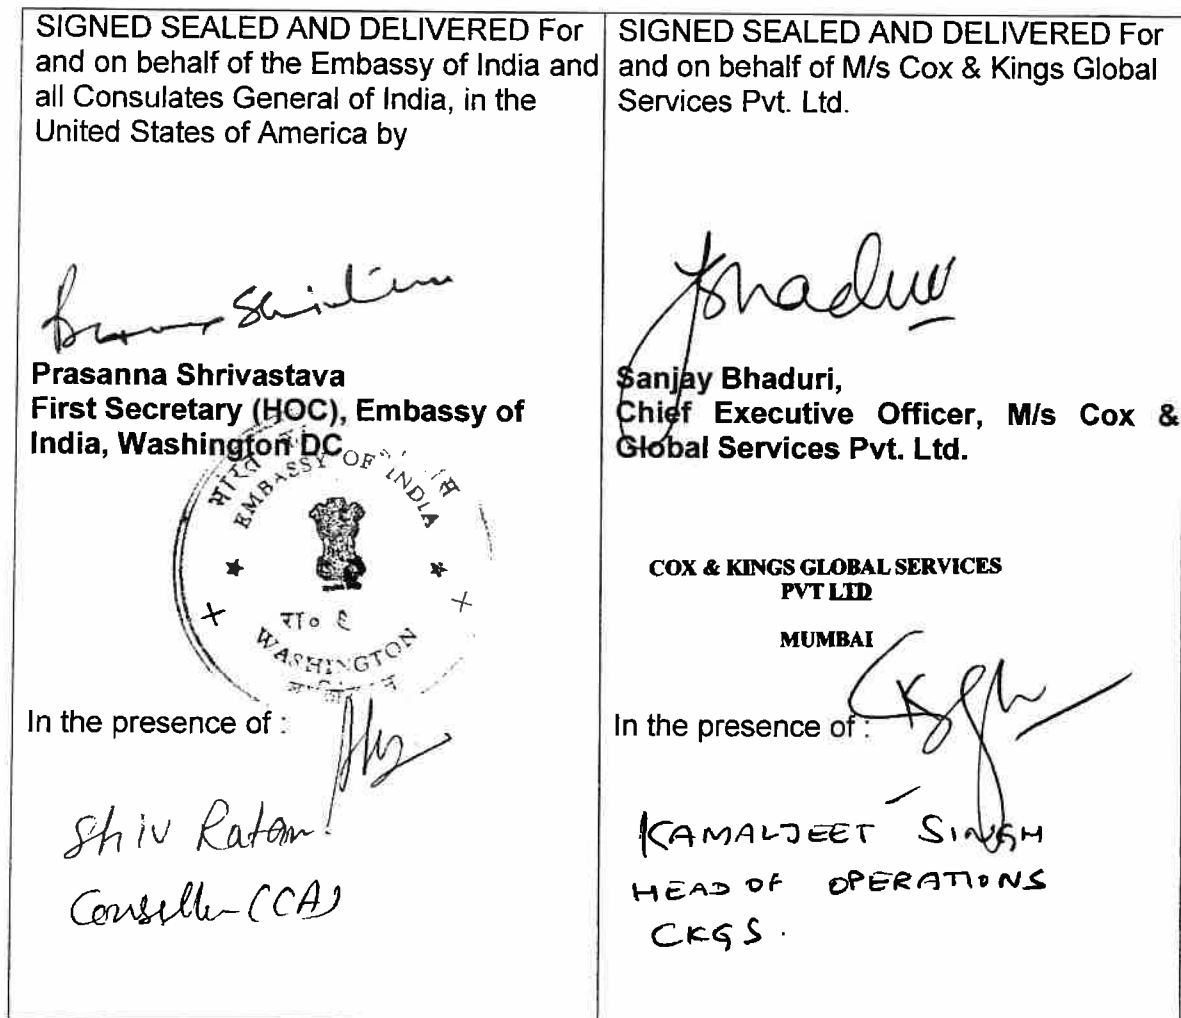 SIGNED SEALED AND DELIVERED For
and on behalf of the Embassy of India and
all Consulates General of India, in the
United States of America by
Prasanna Shrivastava
First Secretary (HOC), Embassy of
India, Washington DC
EMBASSY OF INDIA
WASHINGTON
In the presence of :
Shiv Ratan
(CCA)
SIGNED SEALED AND DELIVERED For
and on behalf of M/s Cox & Kings Global
Services Pvt. Ltd.
Sanjay Bhaduri,
Chief Executive Officer, M/s Cox &
Global Services Pvt. Ltd.
COX & KINGS GLOBAL SERVICES
PVT LTD
MUMBAI
In the presence of :
KAMALJEET SINGH
HEAD OF OPERATIONS
CKGS.